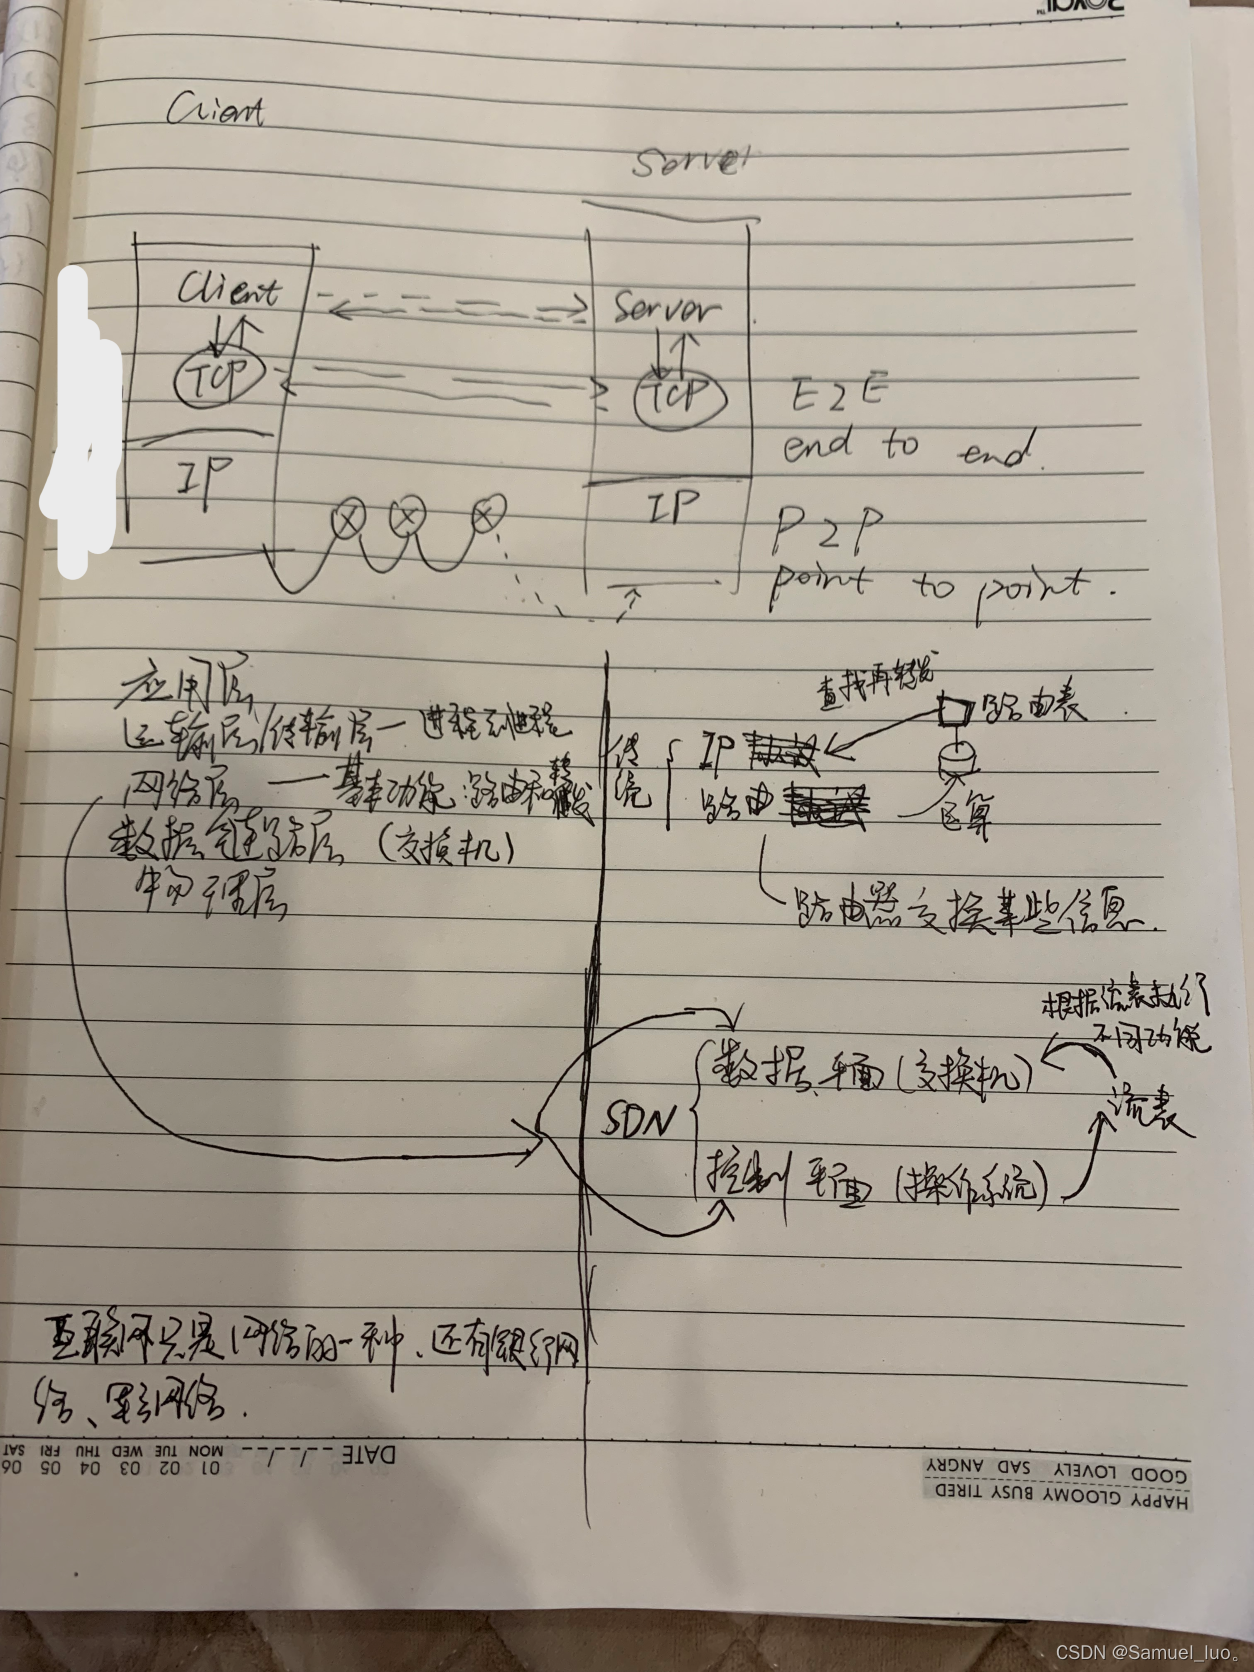 Client
Server
Client
Server
TCP
TCP
E2E
end to end.
IP
IP
P2P
point to point.
应用层
运输层/传输层—进程到进程
网络层——基本功能:路由和转发
数据链路层(交换机)
物理层
查找再转发
路由表
传统
IP
路由
运算
路由器交换某些信息.
根据流表执行
不同功能
SDN
数据平面(交换机)
流表
控制平面(操作系统)
互联网只是网络的一种、还有银行网
络、军网络.
DATE __/__/__
MON TUE WED THU FRI SAT
01 02 03 04 05 06
GOOD LOVELY SAD ANGRY
HAPPY GLOOMY BUSY TIRED
CSDN @Samuel_luo。